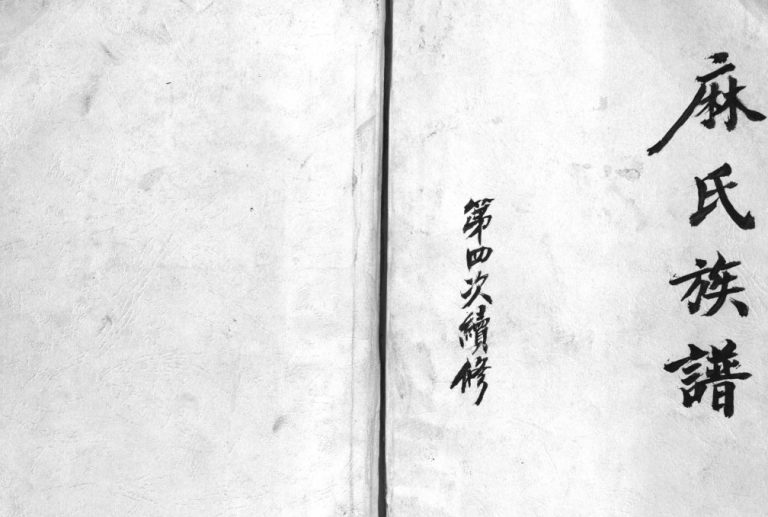 麻氏族譜
第四次續修